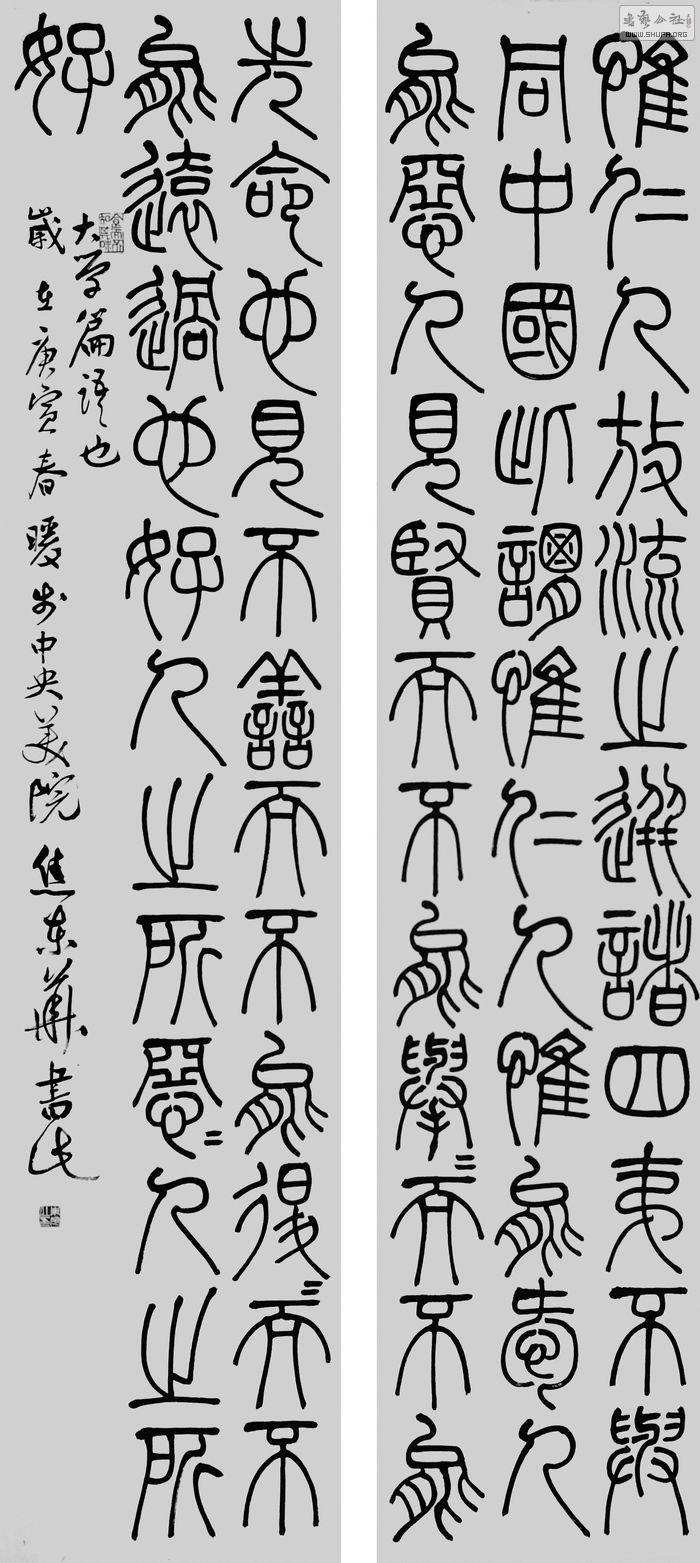 書藝公社
WWW.SHUFA.ORG
惟仁人放流之迸諸四夷不與
同中國此謂惟仁人惟能愛人
能惡人見賢而不能舉=而不能
先命也見不善而不能退=而不
能遠過也好人之所惡=人之所
好
大学篇語也
歲在庚寅春暖於中央美院焦東華書